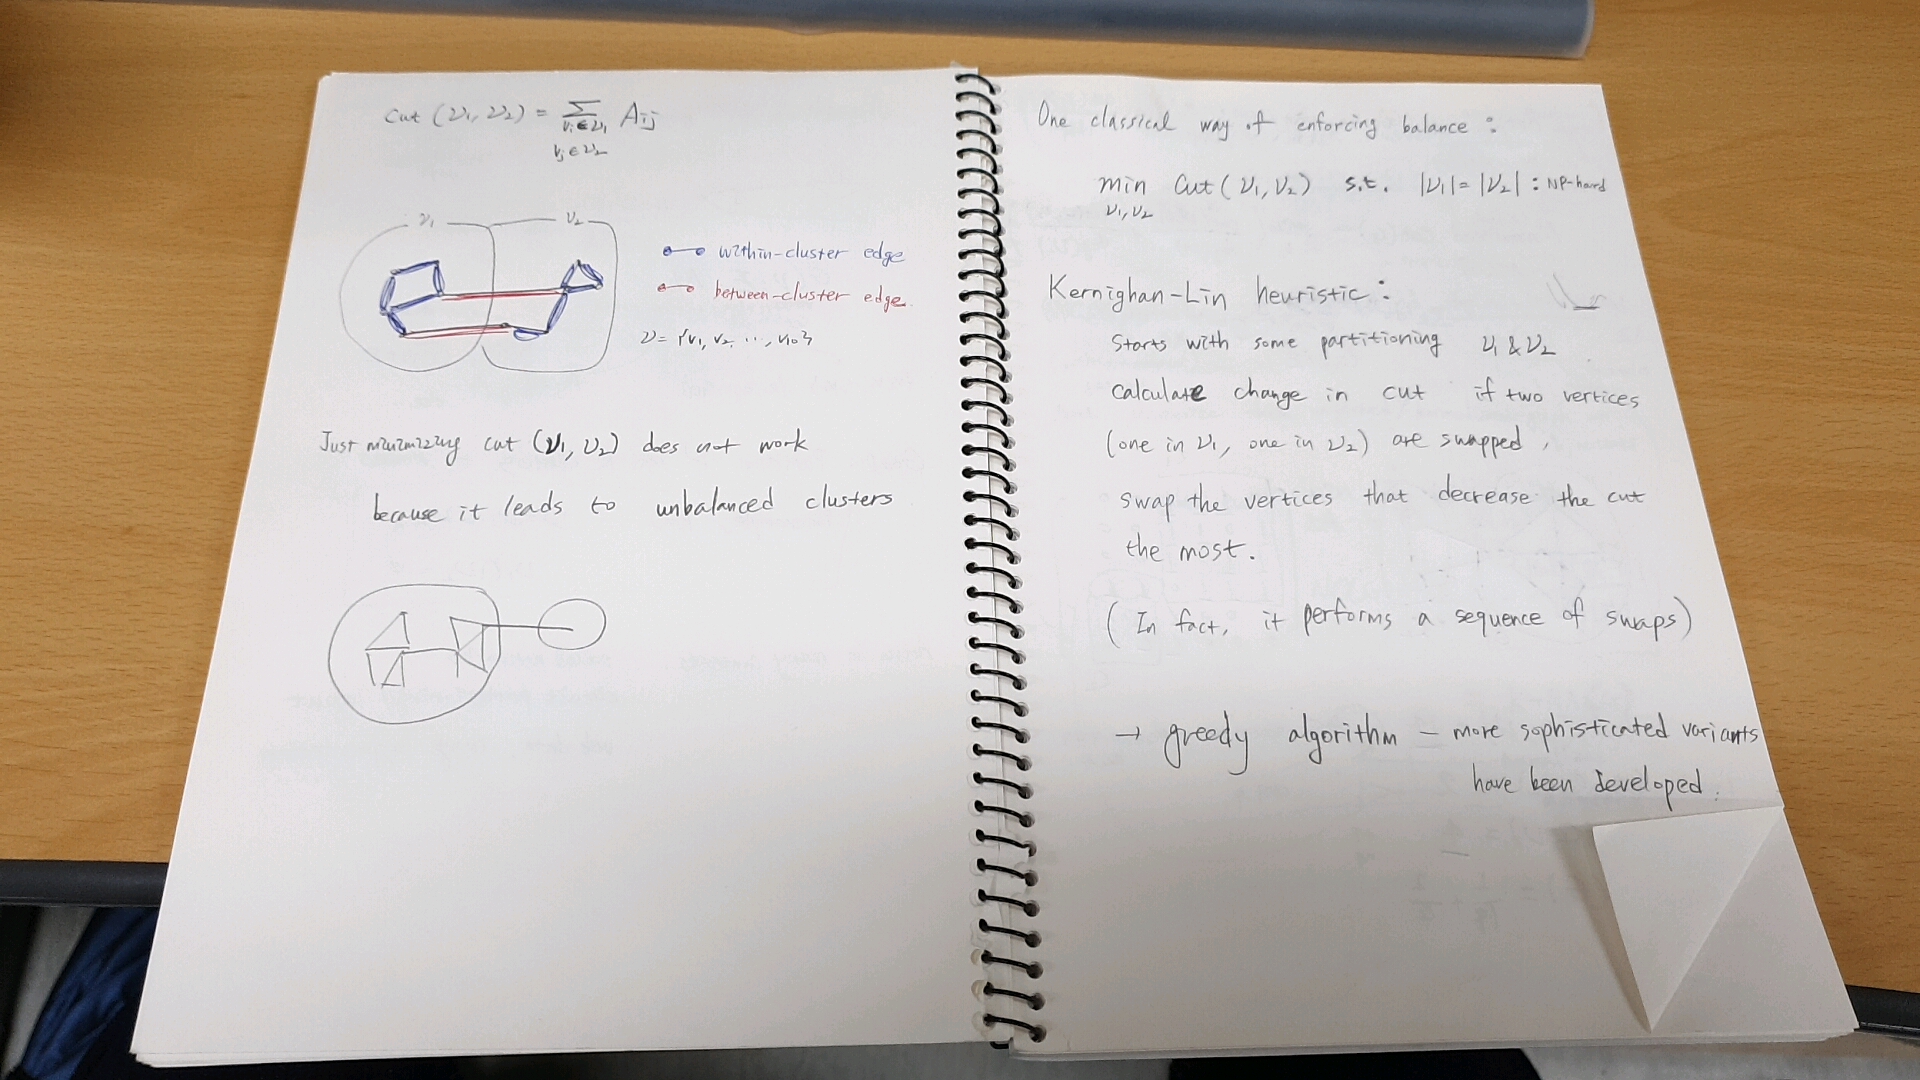 cut (V₁, V₂) = Σ Aij
vi∈V₁
vj∈V₂
V₁ V₂
within-cluster edge
between-cluster edge.
V = {v₁, v₂, ..., v₁₀}
Just minimizing cut (V₁, V₂) does not work
because it leads to unbalanced clusters
One classical way of enforcing balance :
min Cut (V₁, V₂) s.t. |V₁| = |V₂| : NP-hard
V₁, V₂
Kernighan-Lin heuristic :
Starts with some partitioning V₁ & V₂
calculate change in cut if two vertices
(one in V₁, one in V₂) are swapped,
swap the vertices that decrease the cut
the most.
(In fact, it performs a sequence of swaps)
→ greedy algorithm – more sophisticated variants
have been developed.